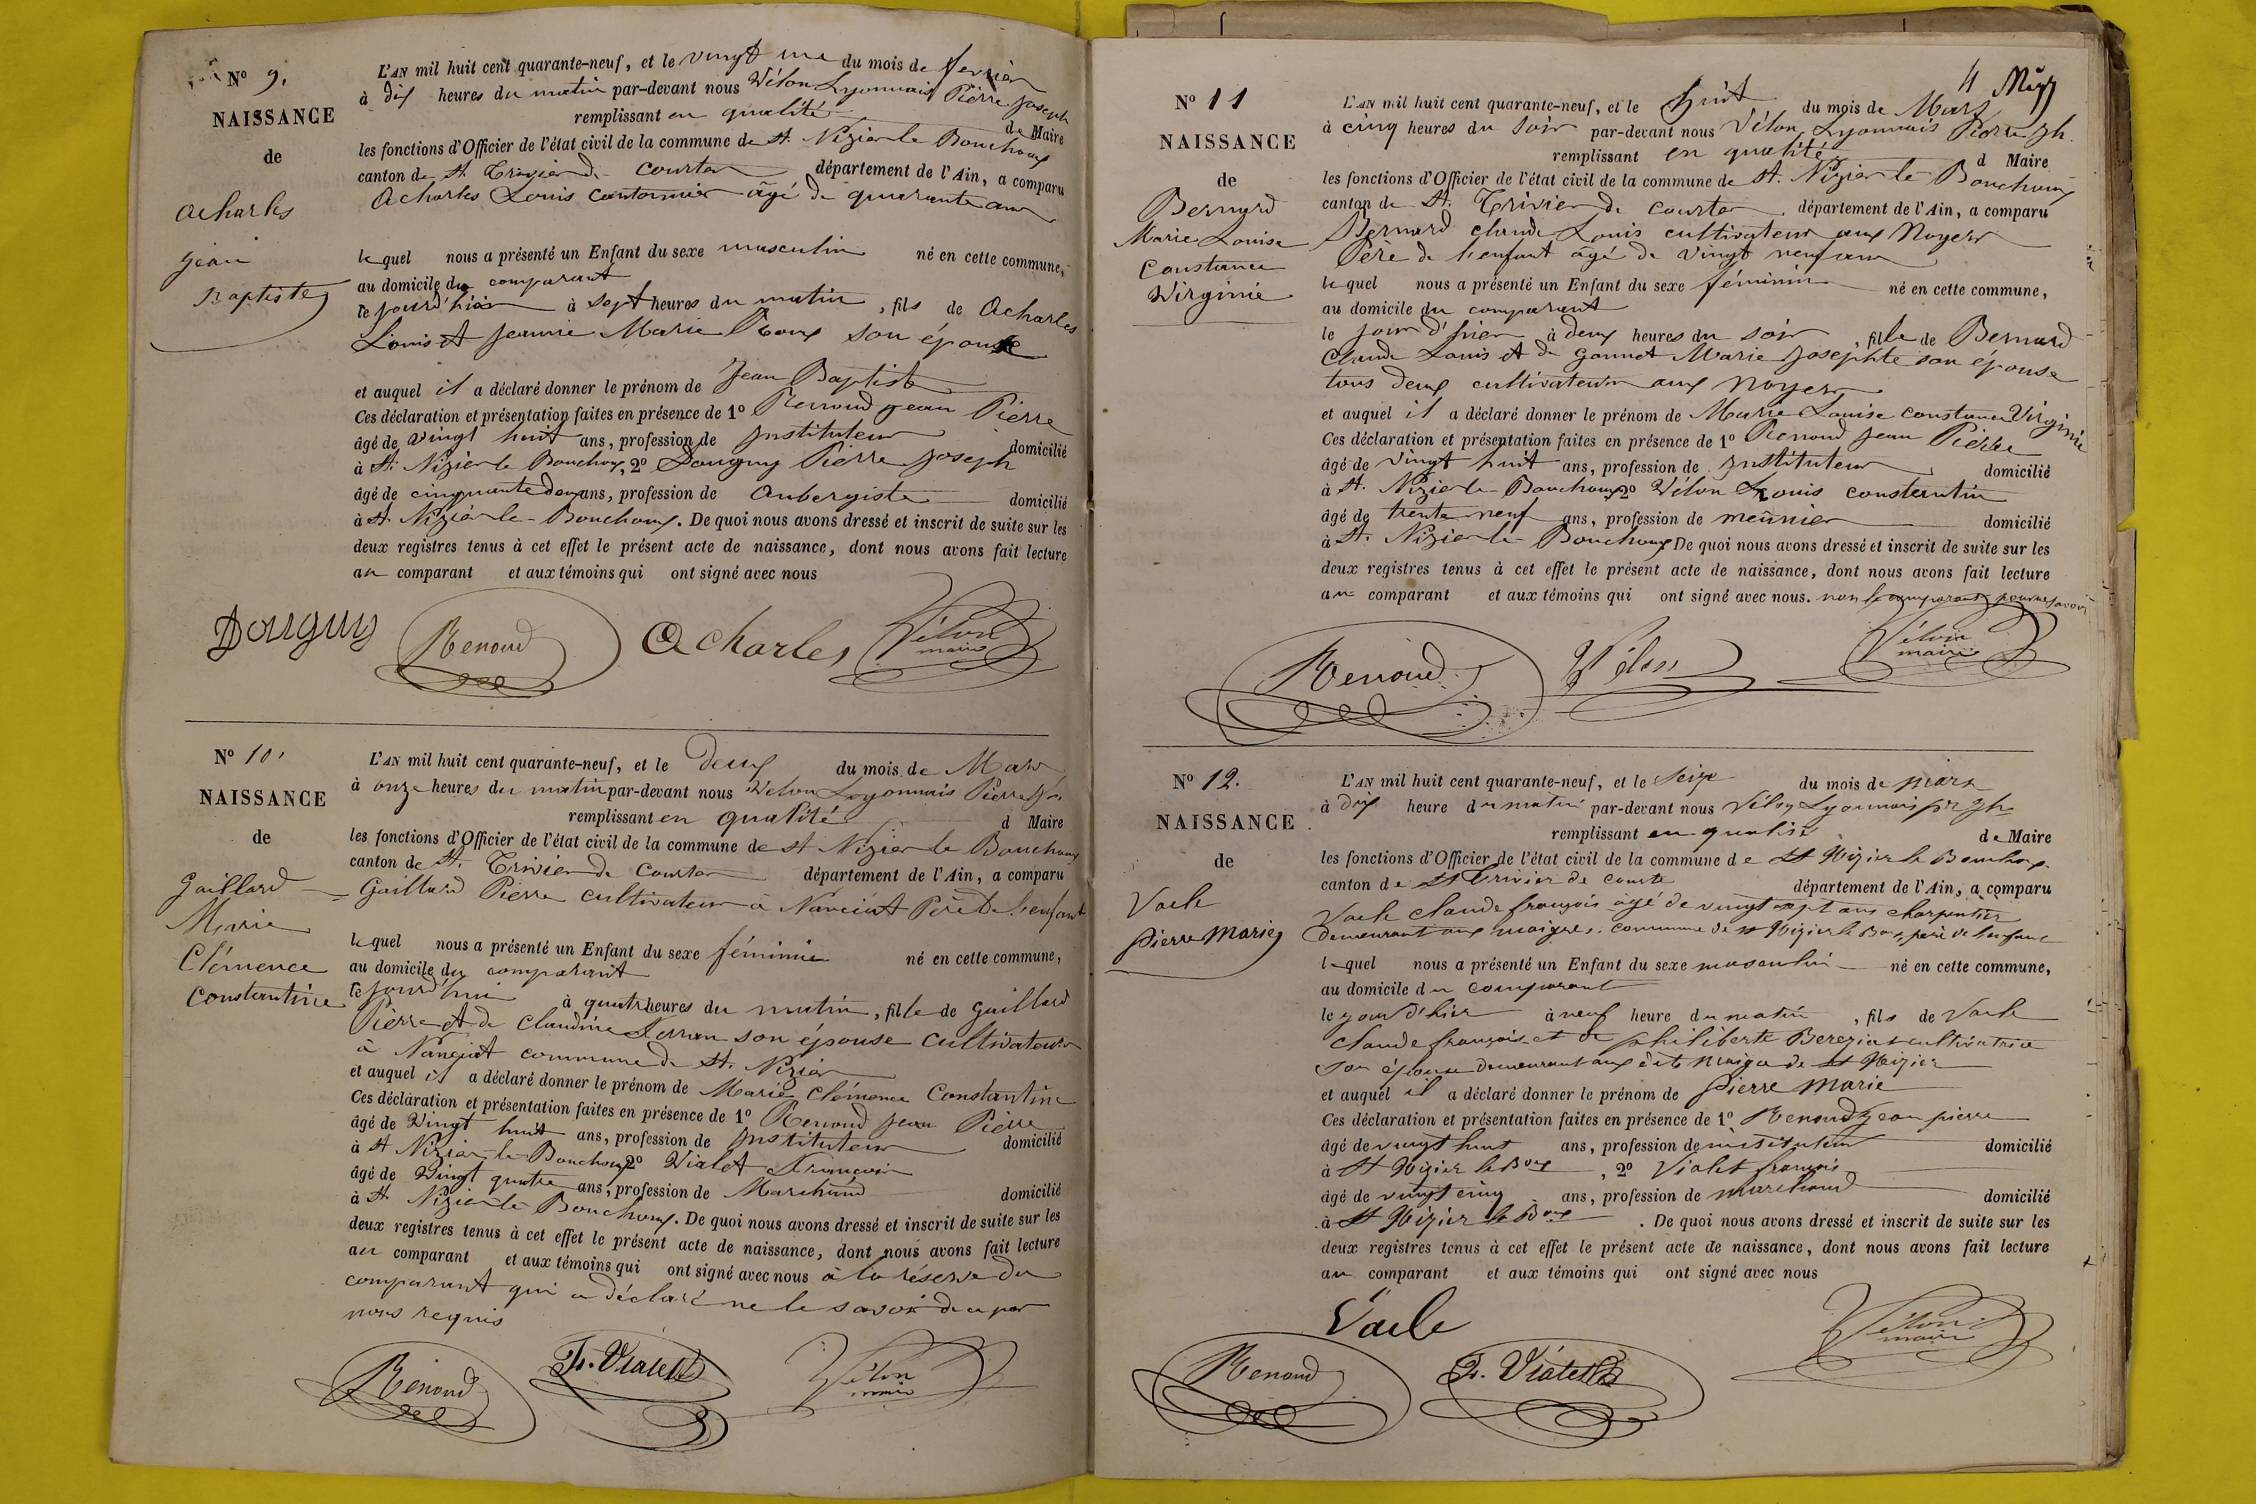 N° 9.
NAISSANCE
de
Acharles
Jean
Baptiste
L'AN mil huit cent quarante-neuf, et le vingt un du mois de fevrier
à dix heures du matin par-devant nous Vélon Lyonnais Pierre Joseph
remplissant en qualité de Maire
les fonctions d'Officier de l'état civil de la commune de St. Nizier le Bouchoux
canton de St. Trivier de Courtes département de l'Ain, a comparu
Acharles Louis cantonnier âgé de quarante ans
lequel nous a présenté un Enfant du sexe masculin né en cette commune,
au domicile du comparant
le jour d'hier à sept heures du matin, fils de Acharles
Louis et Jeanne Marie Roux son épouse
et auquel il a déclaré donner le prénom de Jean Baptiste
Ces déclaration et présentation faites en présence de 1° Renoud Jean Pierre
âgé de vingt huit ans, profession de Instituteur domicilié
à St. Nizier le Bouchoux, 2° Douguy Pierre Joseph
âgé de cinquante deux ans, profession de Aubergiste domicilié
à St. Nizier le Bouchoux. De quoi nous avons dressé et inscrit de suite sur les
deux registres tenus à cet effet le présent acte de naissance, dont nous avons fait lecture
au comparant et aux témoins qui ont signé avec nous
Douguy Renoud Acharles Vélon
maire
N° 10.
NAISSANCE
de
Gaillard
Marie
Clémence
Constantine
L'AN mil huit cent quarante-neuf, et le Deux du mois de Mars
à onze heures du matin par-devant nous Vélon Lyonnais Pierre Jh
remplissant en qualité d Maire
les fonctions d'Officier de l'état civil de la commune de St Nizier le Bouchoux
canton de St. Trivier de Courtes département de l'Ain, a comparu
Gaillard Pierre cultivateur à Nanciat Père de l'enfant
lequel nous a présenté un Enfant du sexe féminin né en cette commune,
au domicile du comparant
le jourd'hui à quatre heures du matin, fille de Gaillard
Pierre et de Claudine son épouse cultivateurs
à Nanciat commune de St. Nizier
et auquel il a déclaré donner le prénom de Marie Clémence Constantine
Ces déclaration et présentation faites en présence de 1° Renoud Jean Pierre
âgé de Vingt huit ans, profession de Instituteur domicilié
à St Nizier le Bouchoux 2° Vialet François
âgé de Vingt quatre ans, profession de Marchand domicilié
à St. Nizier le Bouchoux. De quoi nous avons dressé et inscrit de suite sur les
deux registres tenus à cet effet le présent acte de naissance, dont nous avons fait lecture
au comparant et aux témoins qui ont signé avec nous à la réserve du
comparant qui a déclaré ne le savoir de ce par
nous requis
Renoud F. Vialet Vélon
maire
4
N° 11
NAISSANCE
de
Bernard
Marie Louise
Constance
Virginie
L'AN mil huit cent quarante-neuf, et le huit du mois de Mars
à cinq heures du soir par-devant nous Vélon Lyonnais Pierre Jh.
remplissant en qualité d Maire
les fonctions d'Officier de l'état civil de la commune de St. Nizier le Bouchoux
canton de St. Trivier de Courtes département de l'Ain, a comparu
Bernard Claude Louis cultivateur aux Noyers
Père de l'enfant âgé de vingt neuf ans
lequel nous a présenté un Enfant du sexe féminin né en cette commune,
au domicile du comparant
le jour d'hier à deux heures du soir, fille de Bernard
Claude Louis et de Gonnet Marie Josephte son épouse
tous deux cultivateurs aux Noyers
et auquel il a déclaré donner le prénom de Marie Louise Constance Virginie
Ces déclaration et présentation faites en présence de 1° Renoud Jean Pierre
âgé de vingt huit ans, profession de Instituteur domicilié
à St. Nizier le Bouchoux 2° Vélon Louis Constantin
âgé de trente neuf ans, profession de meunier domicilié
à St. Nizier le Bouchoux De quoi nous avons dressé et inscrit de suite sur les
deux registres tenus à cet effet le présent acte de naissance, dont nous avons fait lecture
au comparant et aux témoins qui ont signé avec nous. non le comparant pour ne savoir
Renoud Vélon Vélon
maire
N° 12.
NAISSANCE
de
Vacle
Pierre Marie
L'AN mil huit cent quarante-neuf, et le Seize du mois de mars
à dix heure du matin par-devant nous Vélon Lyonnais prre jh
remplissant en qualité de Maire
les fonctions d'Officier de l'état civil de la commune de St Nizier le Bouchoux
canton de St Trivier de Courte département de l'Ain, a comparu
Vacle Claude françois agé de vingt sept ans charpentier
demeurant aux commune de St Nizier le Boux père de l'enfant
lequel nous a présenté un Enfant du sexe masculin né en cette commune,
au domicile du comparant
le jour d'hier à neuf heure du matin, fils de Vacle
Claude françois et de philiberte Bereziat cultivatrice
son épouse demeurant aux dits de St Nizier
et auquel il a déclaré donner le prénom de Pierre Marie
Ces déclaration et présentation faites en présence de 1° Renoud Jean pierre
âgé de vingt huit ans, profession de instituteur domicilié
à St Nizier le Boux, 2° Vialet françois
âgé de vingt cinq ans, profession de marchand domicilié
à St Nizier le Boux. De quoi nous avons dressé et inscrit de suite sur les
deux registres tenus à cet effet le présent acte de naissance, dont nous avons fait lecture
au comparant et aux témoins qui ont signé avec nous
Vacle Vélon
maire
Renoud F. Vialet